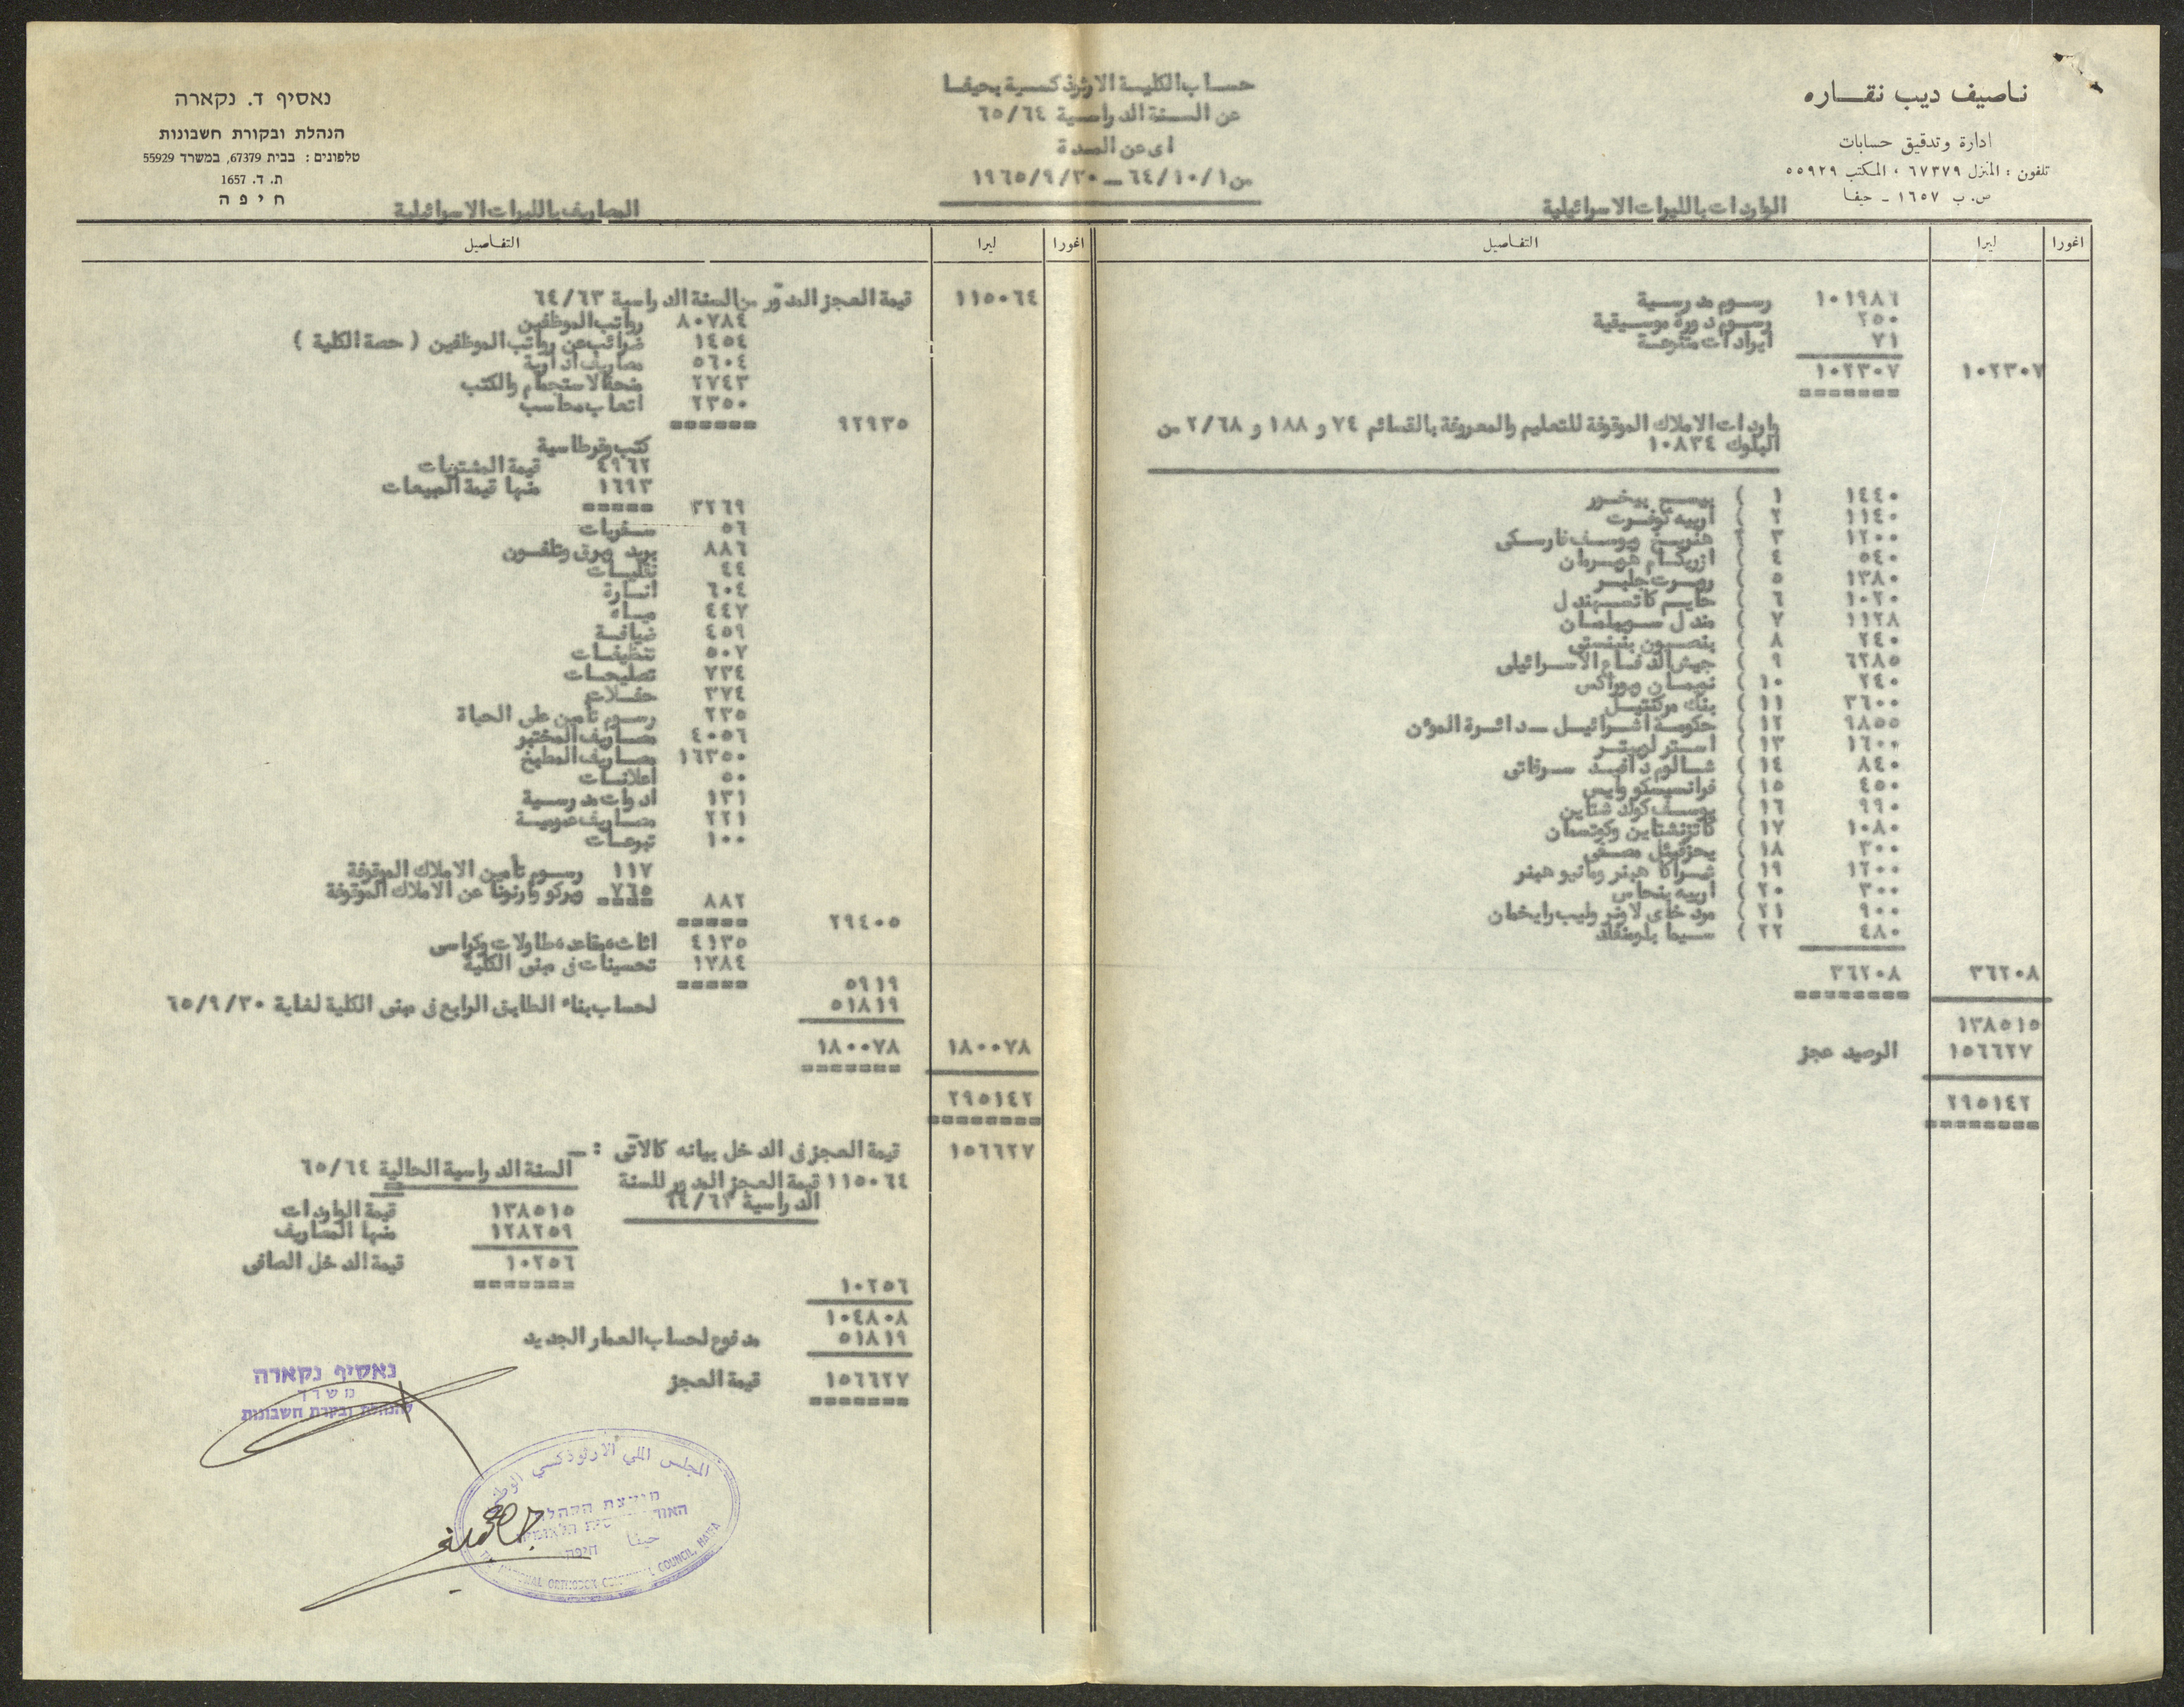 ناصيف ديب نقاره
ادارة وتدقيق حسابات
تلفون : المنزل ٦٧٣٧٩ ، المكتب ٥٥٩٢٩
ص. ب ١٦٥٧ ـ حيفا
حساب الكلية الارثوذكسية بحيفا
عن السنة الدراسية ٦٥/٦٤
اى عن المدة
من ٦٤/١٠/١ ــ ١٩٦٥/٩/٣٠
נאסיף ד. נקארה
הנהלת ובקורת חשבונות
טלפונים : בבית 67379, במשרד 55929
ת. ד. 1657
חיפה
الواردات بالليرات الاسرائيلية
اغورا ليرا التفاصيل
١٠١٩٨٦ رسوم مدرسية
٢٥٠ رسوم دورة موسيقية
٧١ ايرادات متنوعة
١٠٢٣٠٧ ١٠٢٣٠٧
واردات الاملاك الموقوفة للتعليم والمعروفة بالقسائم ٧٤ و ١٨٨ و ٢/٦٨ من
البلوك ١٠٨٣٤
١٤٤٠ ١ ) بيسح بيخور
١١٤٠ ٢ ) اربيه
١٢٠٠ ٣ ) هنريخ ويوسف فارسكى
٥٤٠ ٤ ) ازريكام هوبرمان
١٣٨٠ ٥ ) روبرت جلبر
١٠٢٠ ٦ ) حاييم كاتسبندل
١١٢٨ ٧ ) مندل سويلمان
٢٤٠ ٨ ) بنصيون بنبنستى
٦٢٨٥ ٩ ) جيش الدفاع الاسرائيلى
٢٤٠ ١٠ ) نويمان وبوراكس
٣٦٠٠ ١١ ) بنك مركنتيل
٩٨٥٥ ١٢ ) حكومة اسرائيل ــ دائرة المؤن
١٦٠٠ ١٣ ) استر لوبيتر
٨٤٠ ١٤ ) شالوم دافيد سرفاتى
٤٥٠ ١٥ ) فرانسيسكو وايس
٩٩٠ ١٦ ) يوسف كولد شتاين
١٠٨٠ ١٧ ) كاتزنشتاين وكوتسمان
٣٠٠ ١٨ ) يحزقيئل مصفى
١٢٠٠ ١٩ ) شراكا هيفر وماتيو هيفر
٣٠٠ ٢٠ ) اربيه بنحاس
٩٠٠ ٢١ ) مردخاى لاوفر وليب رايخمان
٤٨٠ ٢٢ ) سيما بلومنفلد
٣٦٢٠٨ ٣٦٢٠٨
١٣٨٥١٥
١٥٦٦٢٧ الرصيد عجز
٢٩٥١٤٢
المصاريف بالليرات الاسرائيلية
اغورا ليرا التفاصيل
١١٥٠٦٤ قيمة العجز المدوّر من السنة الدراسية ٦٤/٦٣
٨٠٧٨٤ رواتب الموظفين
١٤٥٤ ضرائب عن رواتب الموظفين ( حصة الكلية )
٥٦٠٤ مصاريف ادارية
٢٧٤٣ منحة الاستجمام والكتب
٢٣٥٠ اتعاب محاسب
٩٢٩٣٥
كتب وقرطاسية
٤٩٦٢ قيمة المشتريات
١٦٩٣ منها قيمة المبيعات
٣٢٦٩
٥٦ سفريات
٨٨٦ بريد وبرق وتلفون
٤٤ نقليات
٦٠٤ انارة
٤٤٧ مياه
٤٥٩ ضيافة
٥٠٧ تنظيفات
٧٣٤ تصليحات
٣٧٤ حفلات
٢٣٥ رسوم تأمين على الحياة
٤٠٥٦ مصاريف المختبر
١٦٣٥٠ مصاريف المطبخ
٥٠ اعلانات
١٣١ ادوات مدرسية
٢٢١ مصاريف عمومية
١٠٠ تبرعات
١١٧ رسوم تأمين الاملاك الموقوفة
٧٦٥ ويركو وارنونا عن الاملاك الموقوفة
٨٨٢
٢٩٤٠٥
٤١٣٥ اثاث ، مقاعد ، طاولات وكراسى
١٧٨٤ تحسينات فى مبنى الكلية
٥٩١٩
٥١٨١٩ لحساب بناء الطابق الرابع فى مبنى الكلية لغاية ٦٥/٩/٣٠
١٨٠٠٧٨ ١٨٠٠٧٨
٢٩٥١٤٢
١٥٦٦٢٧ قيمة العجز فى الدخل بيانه كالآتى : ــ
السنة الدراسية الحالية ٦٥/٦٤
١١٥٠٦٤ قيمة العجز المدور للسنة
الدراسية ٦٤/٦٣
١٣٨٥١٥ قيمة الواردات
١٢٨٢٥٩ منها المصاريف
١٠٢٥٦ قيمة الدخل الصافى
١٠٢٥٦
١٠٤٨٠٨
٥١٨١٩ مدفوع لحساب العمار الجديد
١٥٦٦٢٧ قيمة العجز
נאסיף נקארה
משרד
להנהלת ובקרת חשבונות
المجلس الملي الارثوذكسي الوطني
מועצת הקהלה
حيفا
חיפה
NATIONAL ORTHODOX COUNCIL, HAIFA